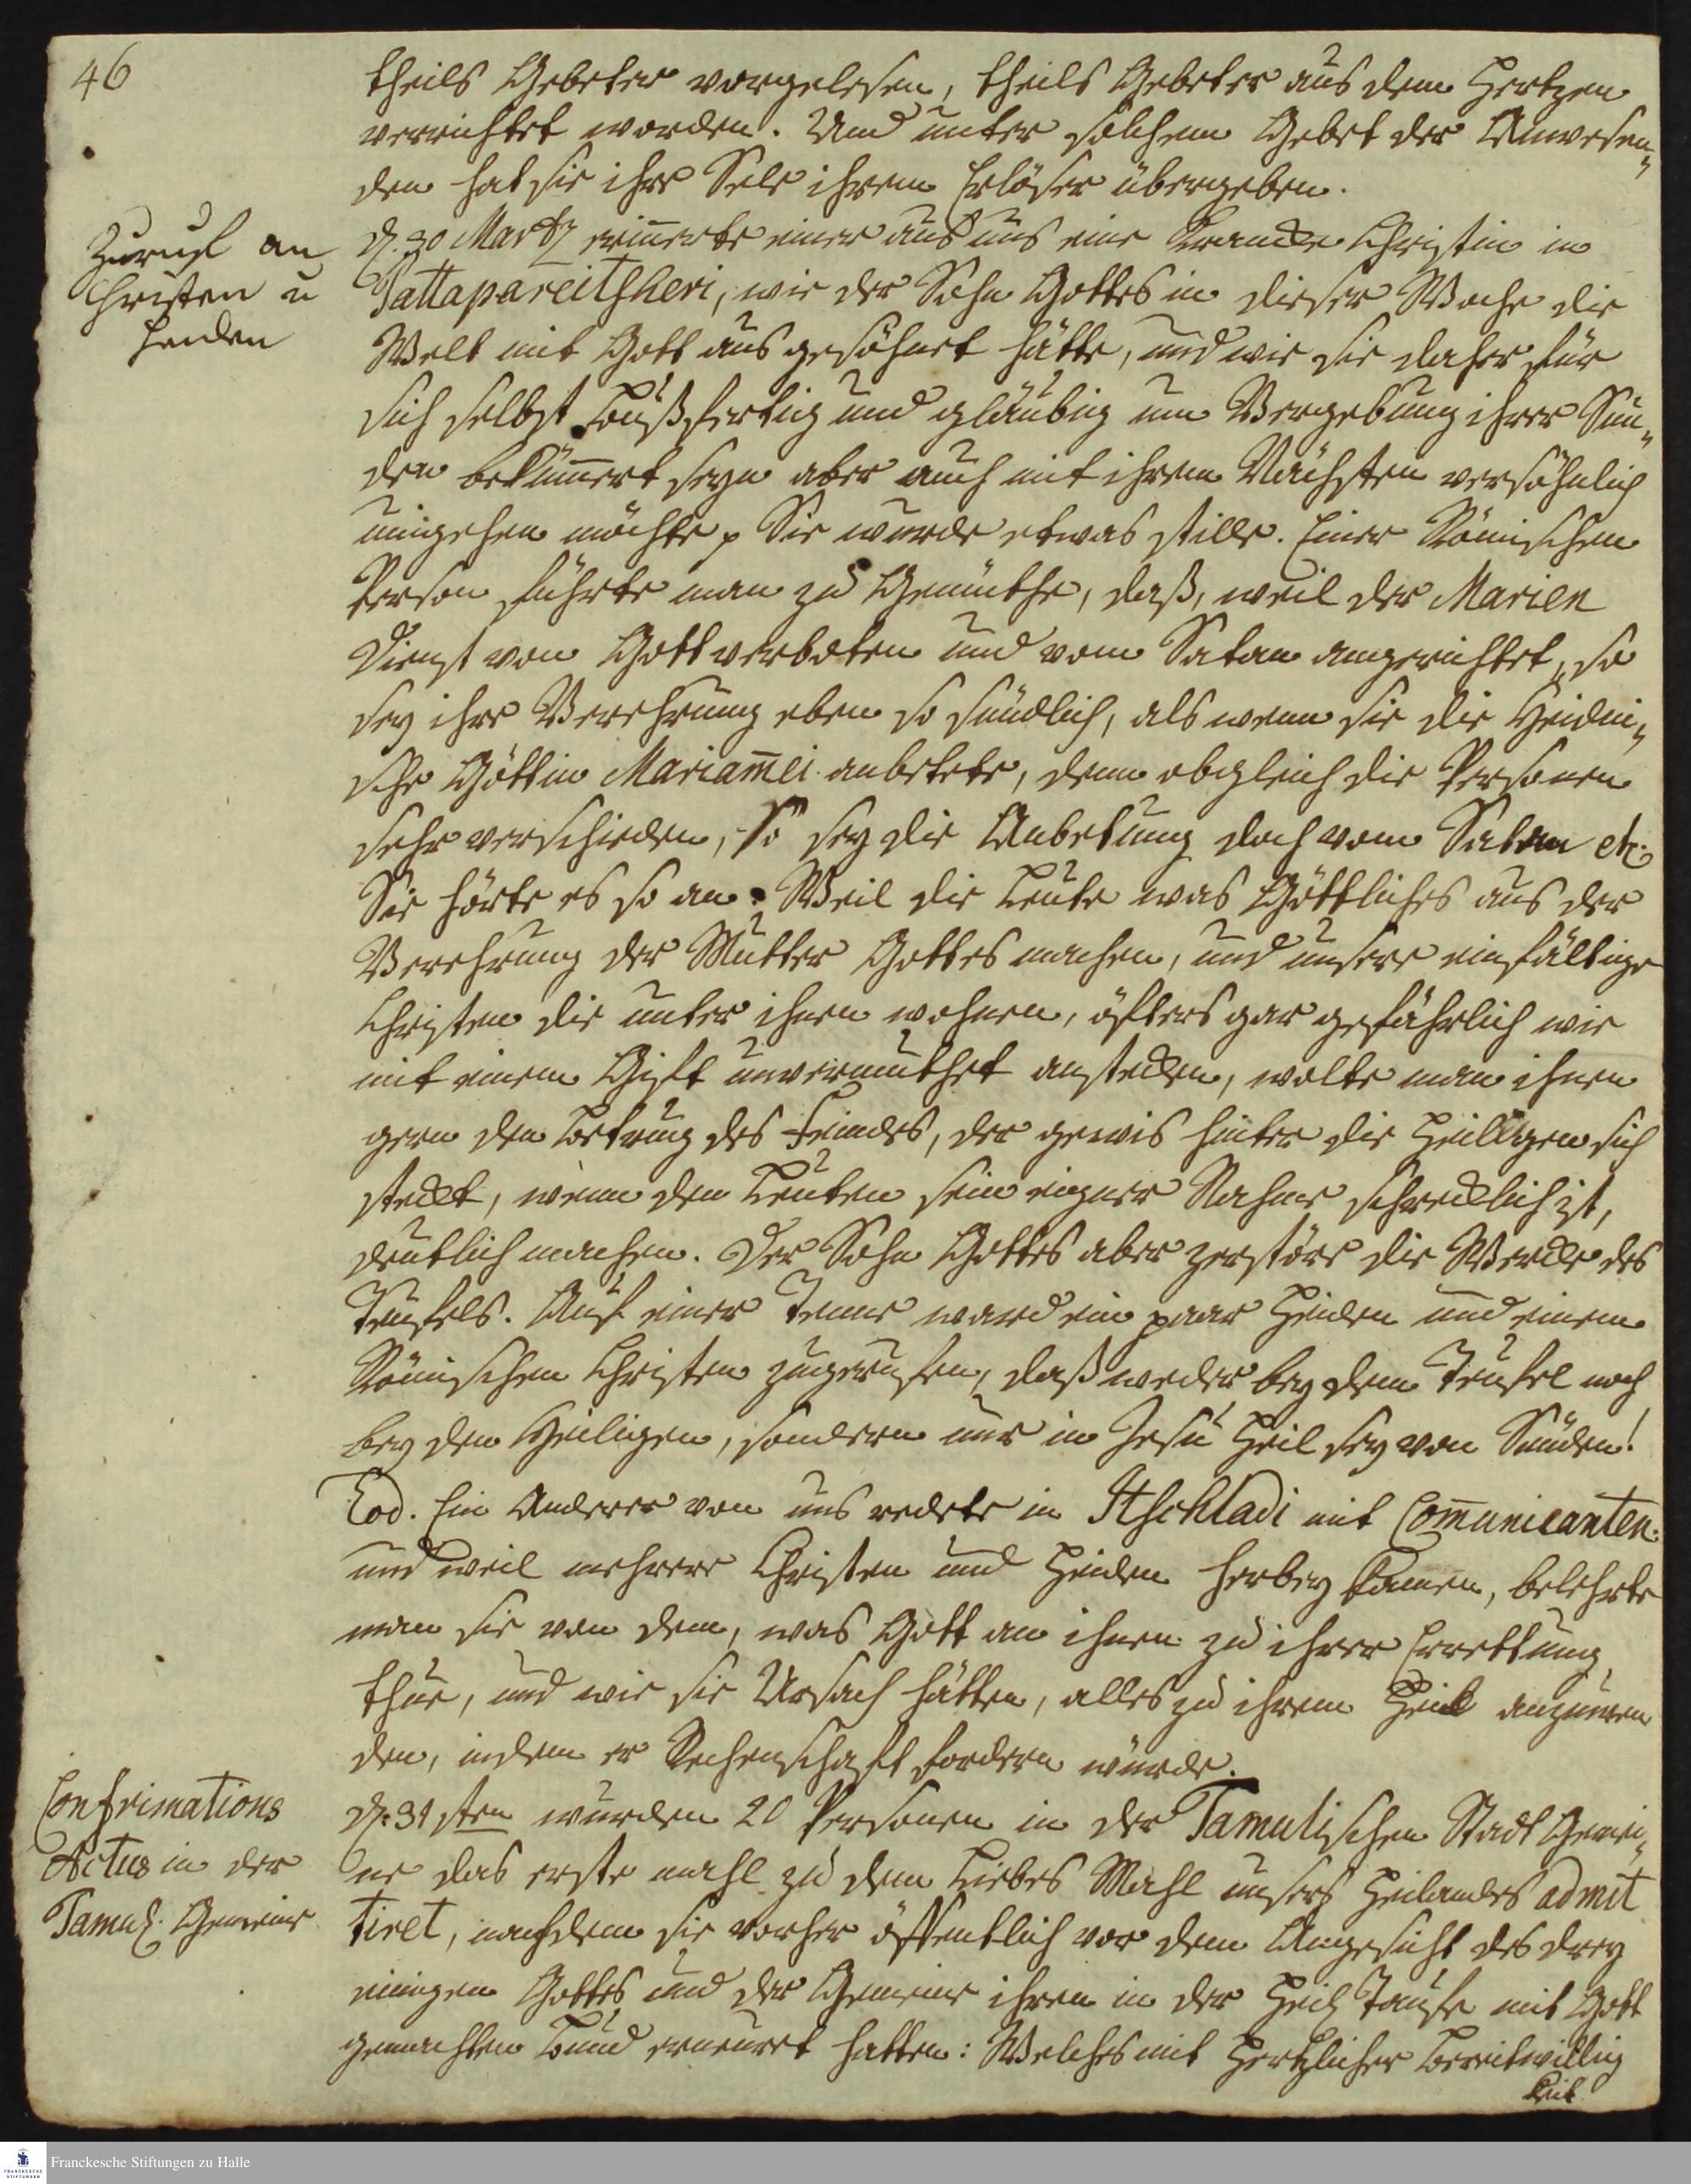 46
theils Gebeter vorgelesen, theils Gebeter aus dem Hertzen
verrichtet worden. Und unter solchem Gebet der Anwesen„
den hat sie ihre Sele ihrem Erlöser übergeben.
Zuruf an
Christen u
Heiden
d. 30 Martz erin̄erte einer aus uns eine krancke Christin in
Sattapareitsheri, wie der Sohn Gottes in dieser Woche die
Welt mit Gott aus gesöhnet hätte, und wie sie daher für
sich selbst bußfertig und gläubig um Vergebung ihrer Sün„
den beküm̄ert seyn aber auch mit ihrem Nächsten versöhnlich
umgehen möchte p Sie wurde etwas stille. Einer Römischen
Person führte man zu Gemüthe, daß, weil der Marien
Dienst von Gott verboten und vom Satan angerichtet, so
sey ihre Verehrung eben so sündlich, als wenn sie die Heidni„
sche Göttin Mariam̄ei anbetete, denn obgleich die Personen
sehr verschieden, so sey die Anbetung doch vom Satan etc.
Sie hörte es so an. Weil die Leute was Göttliches aus der
Verehrung der Mutter Gottes machen, und unsere einfältige
Christen die unter ihnen wohnen, öfters gar gefährlich wie
mit einem Gift unvermuthet anstecken, wolte man ihnen
gern den Betrug des Feindes, der gewis hinter die Heiligen sich
steckt, wenn den Leuten sein eigner Nahme schrecklich ist,
deutlich machen. Der Sohn Gottes aber zerstöre die Wercke des
Teufels. Auf einer Tenne ward ein paar Heiden und einem
Römischen Christen zugerufen, daß weder bey dem Teufel noch
bey den Heiligen, sondern nur in Jesu Heil sey von Sünden!
Eod. Ein Anderer von uns redete in Itschladi mit Com̄unicanten:
und weil mehrere Christen und Heiden herbey kamen, belehrte
man sie von dem, was Gott an ihnen zu ihrer Errettung
thue, und wie sie Ursach hätten, alles zu ihrem Heil anzuwen
den, indem er Rechenschaft fordern würde.
Confrimations
Actus in der
Tamul. Gemeine
d. 31sten wurden 20 Personen in der Tamulischen Stadt Gemei„
ne das erste mahl zu dem Liebes Mahl unsers Heilandes admit
tiret, nachdem sie vorher öffentlich vor dem Angesicht des drey
einigen Gottes und der Gemeine ihren in der Heil. Taufe mit Gott
gemachten Bund erneuret hatten: Welches mit Hertzlicher Bereitwillig
keit
Franckesche Stiftungen zu Halle
FRANCKESCHE STIFTUNGEN